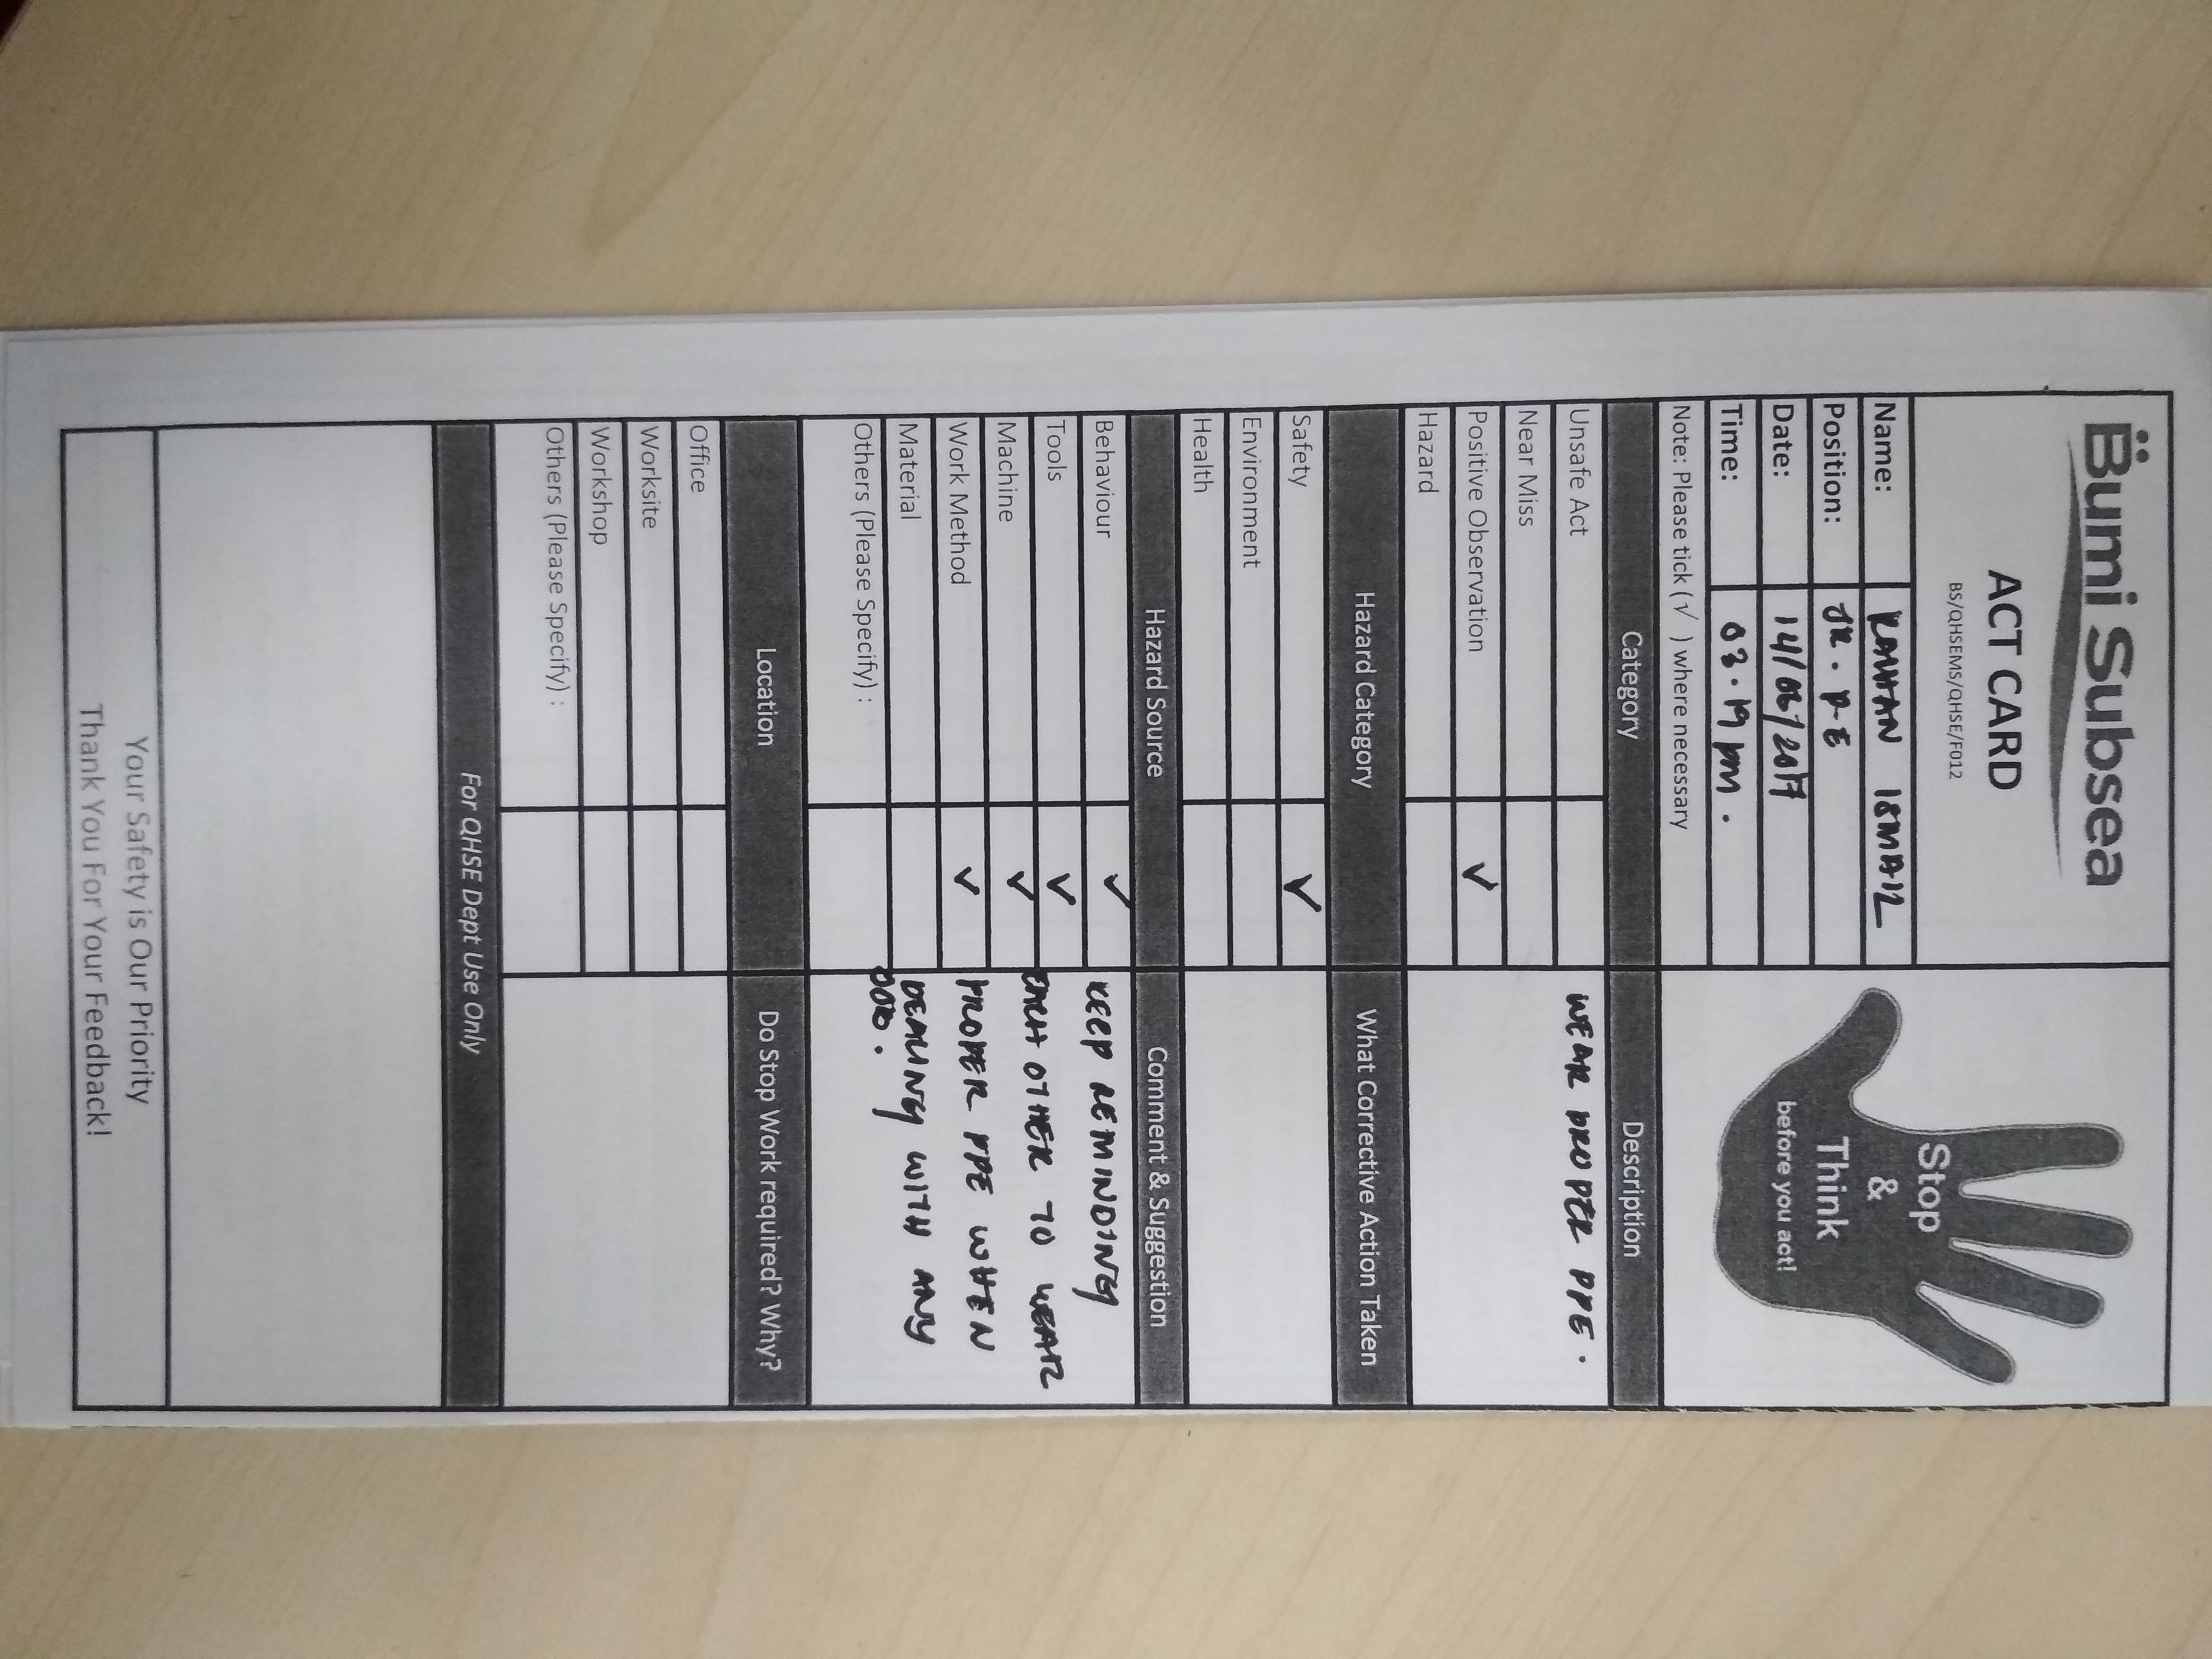 Bumi Subsea
ACT CARD
BS/QHSEMS/QHSE/F012
Stop
&
Think
before you act!
Name: ISMAIL
Position: JR. P-E
Date: 14/06/2017
Time: 03.19 pm.
Note: Please tick (√ ) where necessary
Category Description
Unsafe Act WEAR PROPER PPE.
Near Miss
Positive Observation ✓
Hazard
Hazard Category What Corrective Action Taken
Safety ✓
Environment
Health
Hazard Source Comment & Suggestion
Behaviour ✓ KEEP REMINDING
Tools ✓ EACH OTHER TO WEAR
Machine ✓
Work Method ✓ PROPER PPE WHEN
Material DEALING WITH ANY
Others (Please Specify) :
Location Do Stop Work required? Why?
Office
Worksite
Workshop
Others (Please Specify) :
For QHSE Dept Use Only
Your Safety is Our Priority
Thank You For Your Feedback!